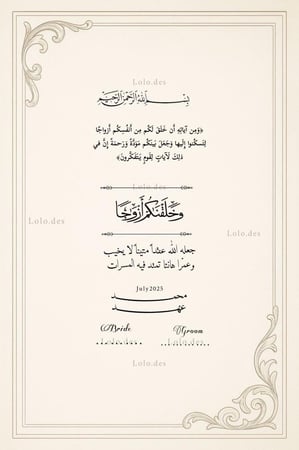 Lolo.des
بسم الله الرحمن الرحيم
﴿وَمِن آيَاتِهِ أَن خَلَقَ لَكُم مِن أَنفُسِكُم أَزواجًا
لِتَسكُنوا إِلَيها وَجَعَلَ بَينَكُم مَوَدَّةً وَرَحمَةً إِنَّ في
ذلِكَ لَآياتٍ لِقَومٍ يَتَفَكَّرونَ﴾
Lolo.des
وَخَلَقْنَكُمْ أَزْوَجًا
Lolo.des
Lolo.des
جعله الله عقداً متيناً لا يخيب
وعمرًا هانئا تمتد فيه المسرات
July2025
محمد
عهد
Bride
Groom
Lolo.des
Lolo.des
Lolo.des